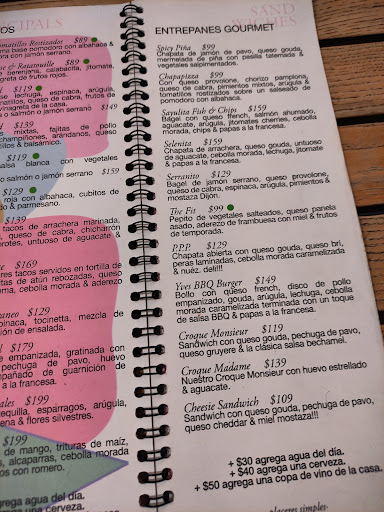 CIPALS
OS
omatillos Rostizados $89
na base pomodoro con albahaca &
ompota.
e & Ratatouille $89
e berenjena, calabacita, jitomate,
greta de frutos rojos.
l $119
lechuga, espinaca, arúgula,
omatillos, queso de cabra, frutos
vinagreta de la casa.
o o salmón o jamón serrano $149
$139
mixtas, fajitas de pollo
champiñones, arándanos, queso
illos & balsámico.
$119
salsa blanca con vegetales
o salmón o jamón serrano $159
$129
roja con albahaca, cubitos de
& parmesano.
$139
tacos de arrachera marinada,
, queso de cabra, chicharrón
rotes, untuoso de aguacate &
$169
tres tacos servidos en tortilla de
tas de atún rebozadas, queso
rna, cebolla morada & aderezo
aneo $129
pinaca, tocinetta, mezcla de
ción de ensalada.
l $179
e empanizada, gratinada con
pechuga de pavo, huevo
mpañado de guarnición de
a la francesa.
ales $199
tequilla, espárragos, arúgula,
ena & flores silvestres.
$199
de mango, trituras de maíz,
, alcaparras, cebolla morada
dos con romero.
agrega agua del día.
SAND
WICHES
ENTREPANES GOURMET
Spicy Piña $99
Chapata de jamón de pavo, queso gouda,
mermelada de piña con pesilla tatemada &
vegetales salpimentados.
Chapapizza $99
Con queso provolone, chorizo pamplona,
queso de cabra, pimientos mixtos, arúgula &
tomatillos rostizados sobre un salseado de
pomodoro con albahaca.
Sayulita Fish & Chips $159
Bagel con queso ffrench, salmón ahumado,
aguacate, arúgula, jitomates cherries, cebolla
morada, chips & papas a la francesa.
Selenita $159
Chapata de arrachera, queso gouda, untuoso
de aguacate, cebolla morada, lechuga, jitomate
& papas a la francesa.
Serranito $129
Bagel de jamón serrano, queso provolone,
queso de cabra, espinaca, arúgula, pimientos &
mostaza Dijón.
The Fit $99
Pepito de vegetales salteados, queso panela
asado, aderezo de frambuesa con miel & frutos
de temporada.
P.P.P. $129
Chapata abierta con queso gouda, queso bri,
peras laminadas, cebolla morada caramelizada
& nuéz. deli!!!
Yves BBQ Burger $149
Bollo con queso french, disco de pollo
empanizado, gouda, arúgula, lechuga, cebolla
morada caramelizada terminada con un toque
de salsa BBQ & papas a la francesa.
Croque Monsieur $119
Sandwich con queso gouda, pechuga de pavo,
queso gruyere & la clásica salsa bechamel.
Croque Madame $139
Nuestro Croque Monsieur con huevo estrellado
& aguacate.
Cheesie Sandwich $109
Sandwich con queso gouda, pechuga de pavo,
queso cheddar & miel mostaza!!!
+ $30 agrega agua del día.
+ $40 agrega una cerveza.
+ $50 agrega una copa de vino de la casa.
placeres simples-